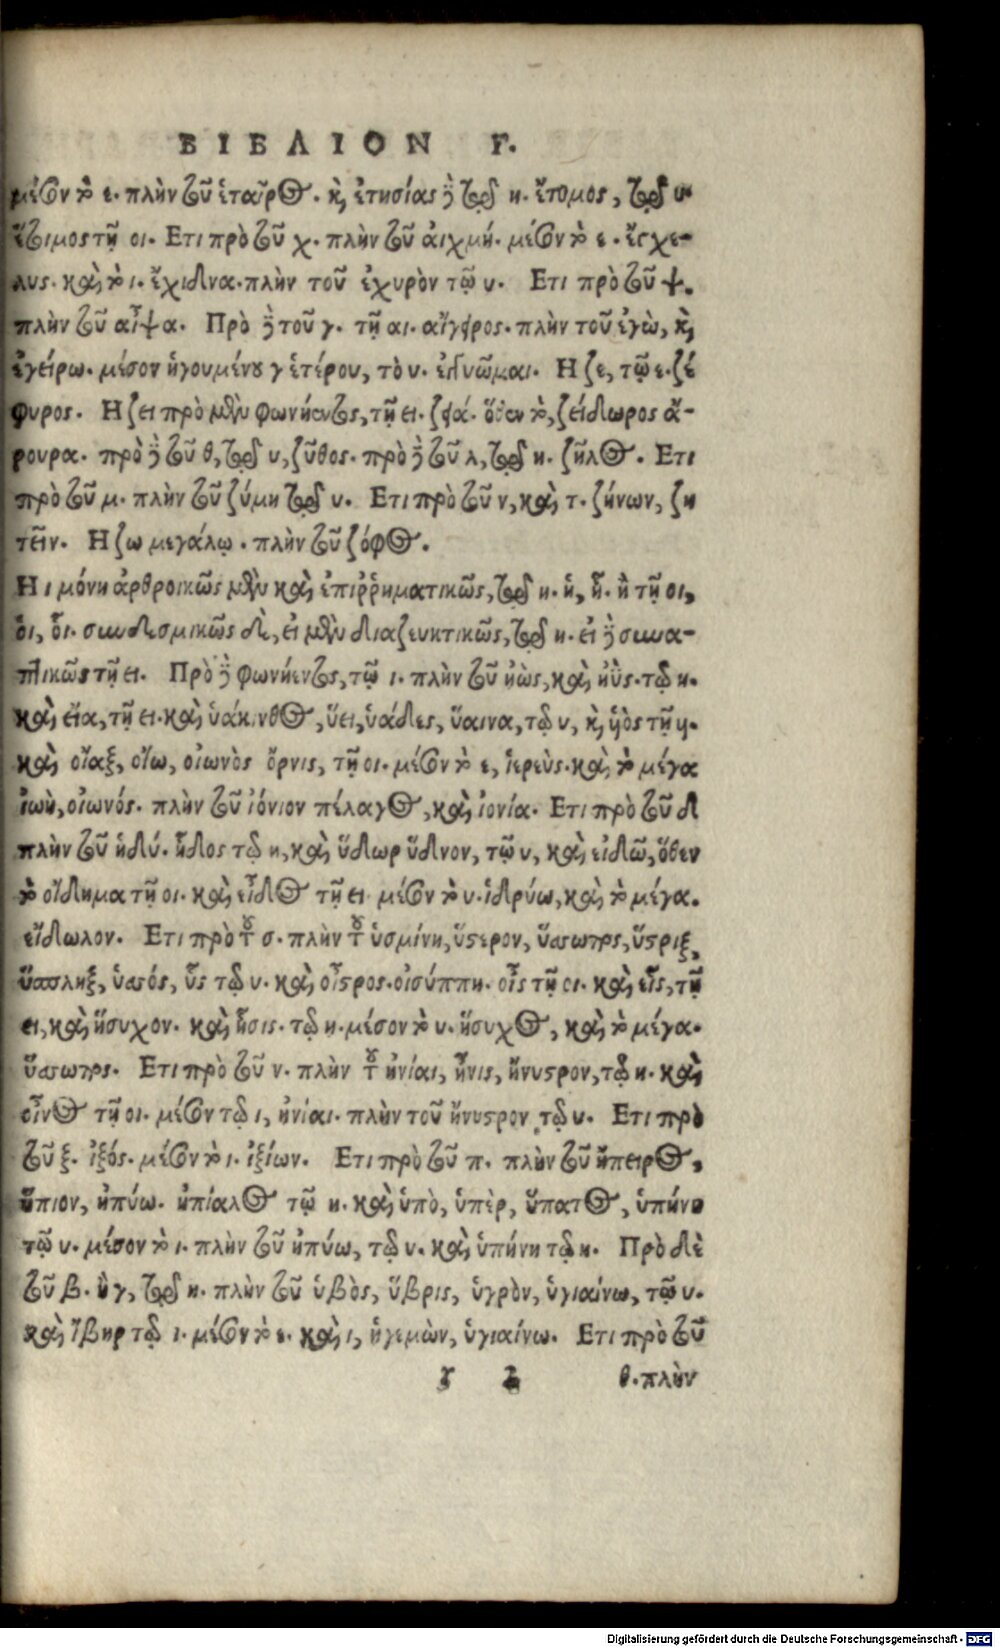 ΒΙΒΛΙΟΝ Γ.
μέσον τὸ ε. πλὴν τοῦ ἑταῖρος. καὶ ἐτησίας δὲ τῷ η. ἕτοιμος, τῷ
ἔτυμος τῇ οι. Ετι πρὸ τοῦ χ. πλὴν τοῦ αἰχμή. μέσον τὸ ε. ἔγχε-
λυς. καὶ τὸ ι. ἔχιδνα. πλὴν τοῦ ἐχυρὸν τῷ υ. Ετι πρὸ τοῦ ψ.
πλὴν τοῦ αἶψα. Πρὸ δὲ τοῦ γ. τῇ αι. αἴγειρος. πλὴν τοῦ ἐγὼ, καὶ
ἐγείρω. μέσον ἡγουμένου γ ἑτέρου, τὸ υ. ἐγγυῶμαι. Η ζε, τῷ ε. ζέ
φυρος. Η ζει πρὸ μὲν φωνήεντος, τῇ ει. ζειά. ὅθεν τὸ, ζείδωρος ἄ-
ρουρα. πρὸ δὲ τοῦ θ, τῷ υ, ζῦθος. πρὸ δὲ τοῦ λ, τῷ η. ζῆλος. Ετι
πρὸ τοῦ μ. πλὴν τοῦ ζύμη τῷ υ. Ετι πρὸ τοῦ ν, καὶ τ. ζήνων, ζη
τεῖν. Η ζω μεγάλῳ. πλὴν τοῦ ζόφος.
Η ι μόνη ἀρθροικῶς μὲν καὶ ἐπιρῥηματικῶς, τῷ η. ἡ, ἧ. ἢ τῇ οι,
οἱ, οἷ. συνδεσμικῶς δὲ, εἰ μὲν διαζευκτικῶς, τῷ η. εἰ δὲ συνα-
πτικῶς τῇ ει. Πρὸ δὲ φωνήεντος, τῷ ι. πλὴν τοῦ ἠὼς, καὶ ἠΰς. τῷ η.
καὶ εἴα, τῇ ει. καὶ ὑάκινθος, ὕει, ὑάδες, ὕαινα, τῷ υ, καὶ υἱὸς τῇ υι.
καὶ οἴαξ, οἴω, οἰωνὸς ὄρνις, τῇ οι. μέσον τὸ ε, ἱερεύς. καὶ τὸ μέγα
ἰωὴ, οἰωνός. πλὴν τοῦ ἰόνιον πέλαγος, καὶ ἰονία. Ετι πρὸ τοῦ δ
πλὴν τοῦ ἡδύ. ἦδος τῷ η, καὶ ὕδωρ ὕδνον, τῷ υ, καὶ εἰδῶ, ὅθεν
τὸ οἴδημα τῇ οι. καὶ εἶδος τῇ ει μέσον τὸ υ. ἱδρύω, καὶ τὸ μέγα.
εἴδωλον. Ετι πρὸ τοῦ σ. πλὴν τοῦ ὑσμίνη, ὕστερον, ὕσσωπος, ὕστριξ,
ὕσπληξ, ὑσσός, ὗς τῷ υ. καὶ οἶστρος. οἰσύππη. οἷς τῇ οι. καὶ εἷς, τῇ
ει, καὶ ἥσυχον. καὶ ἧσις. τῷ η. μέσον τὸ υ. ἥσυχος, καὶ τὸ μέγα.
ὕσσωπος. Ετι πρὸ τοῦ ν. πλὴν τοῦ ἡνίαι, ἦνις, ἤνυστρον, τῷ η. καὶ
οἶνος τῇ οι. μέσον τῷ ι, ἡνίαι. πλὴν τοῦ ἤνυστρον τῷ υ. Ετι πρὸ
τοῦ ξ. ἰξός. μέσον τὸ ι. ἰξίων. Ετι πρὸ τοῦ π. πλὴν τοῦ ἤπειρος,
ἤπιον, ἠπύω. ἠπίαλος τῷ η. καὶ ὑπὸ, ὑπὲρ, ὕπατος, ὑπήνη
τῷ υ. μέσον τὸ ι. πλὴν τοῦ ἠπύω, τῷ υ. καὶ ὑπήνη τῷ η. Πρὸ δὲ
τοῦ β. ἢ γ, τῷ η. πλὴν τοῦ ὑβὸς, ὕβρις, ὑγρὸν, ὑγιαίνω, τῷ υ.
καὶ ἴβηρ τῷ ι. μέσον τὸ ε. καὶ ι, ἡγεμὼν, ὑγιαίνω. Ετι πρὸ τοῦ
γ 2 θ. πλὴν
Digitalisierung gefördert durch die Deutsche Forschungsgemeinschaft - DFG